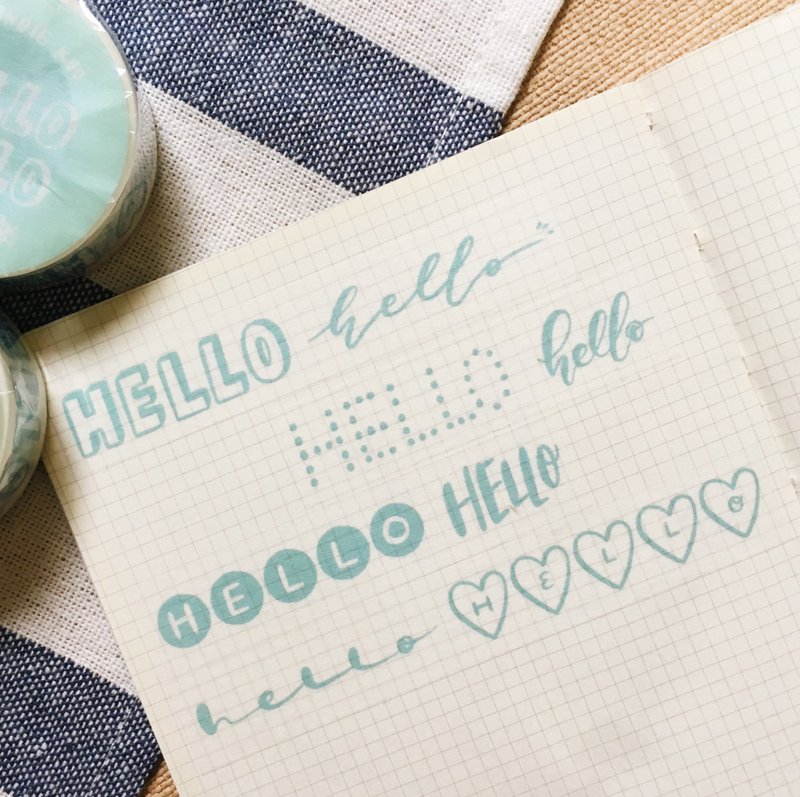 LLO
LO
HELLO hello
HELLO hello
HELLO HELLO
hello HELLO